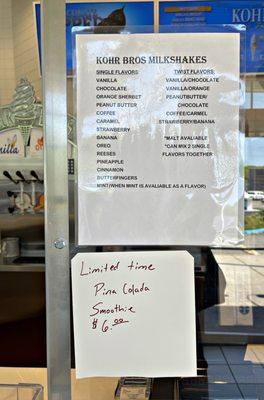 KOHR
KOHR BROS MILKSHAKES
SINGLE FLAVORS
VANILLA
CHOCOLATE
ORANGE SHERBET
PEANUT BUTTER
COFFEE
CARAMEL
STRAWBERRY
BANANA
OREO
REESES
PINEAPPLE
CINNAMON
BUTTERFINGERS
MINT(WHEN MINT IS AVALIABLE AS A FLAVOR)
TWIST FLAVORS
VANILLA/CHOCOLATE
VANILLA/ORANGE
PEANUTBUTTER/
CHOCOLATE
COFFEE/CARMEL
STRAWBERRY/BANANA
*MALT AVALIABLE
*CAN MIX 2 SINGLE
FLAVORS TOGETHER
Limited time
Pina Colada
Smoothie
$6.00